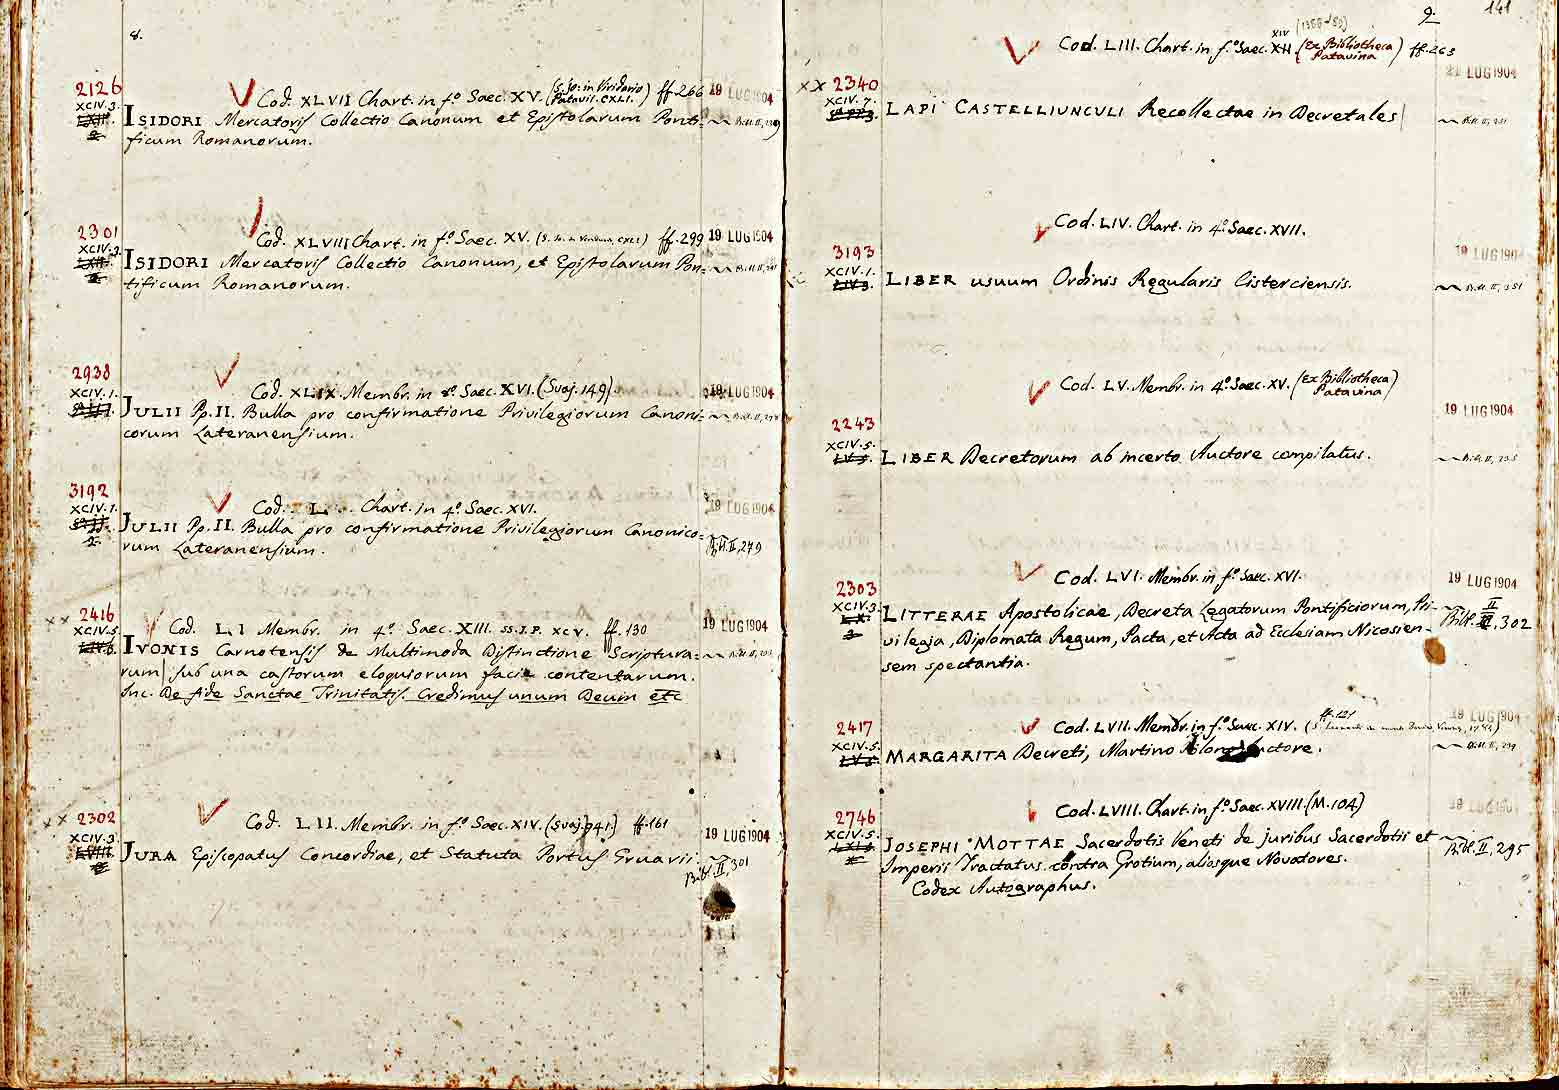 8.
2126
XCIV. 3.
Cod. XLVII Chart. in f.º Saec. XV. (S. Jo: in Viridario Patavii. CXLI.) ff. 266
19 LUG 1904
ISIDORI Mercatoris Collectio Canonum et Epistolarum Ponti-
ficum Romanorum.
2301
XCIV. 3.
Cod. XLVIII Chart. in f.º Saec. XV. ff. 299
19 LUG 1904
ISIDORI Mercatoris Collectio Canonum, et Epistolarum Pon-
tificum Romanorum.
2938
XCIV. 1.
Cod. XLIX. Membr. in 8.º Saec. XVI. (Svaj. 149)
19 LUG 1904
JULII Pp. II. Bulla pro confirmatione Privilegiorum Canoni-
corum Lateranensium.
3192
XCIV. 1.
Cod. L. Chart. in 4.º Saec. XVI.
19 LUG 1904
JULII Pp. II. Bulla pro confirmatione Privilegiorum Canonico-
rum Lateranensium.
Bibl. II, 279
2416
XCIV. 5.
Cod. LI Membr. in 4.º Saec. XIII. SS. J. P. XCV. ff. 130
19 LUG 1904
IVONIS Carnotensis de Multimoda Distinctione Scriptura-
rum, sub una castorum eloquiorum facie contentarum.
Inc. De fide Sanctae Trinitatis. Credimus unum Deum etc
xx 2302
XCIV. 3
Cod. LII. Membr. in f.º Saec. XIV. (Svaj. 941) ff. 161
19 LUG 1904
JURA Episcopatus Concordiae, et Statuta Portus Gruarii.
Bibl. II, 301
9.
141
Cod. LIII. Chart. in f.º Saec. XIV (Ex Bibliotheca Patavina) ff. 263
xx 2340
XCIV. 7.
LUG 1904
LAPI CASTELLIUNCULI Recollectae in Decretales
Cod. LIV. Chart. in 4.º Saec. XVII.
3193
XCIV. 1.
19 LUG 1904
LIBER usuum Ordinis Regularis Cisterciensis.
Cod. LV. Membr. in 4.º Saec. XV. (Ex Bibliotheca Patavina)
2243
XCIV. 5.
19 LUG 1904
LIBER Decretorum ab incerto Auctore compilatus.
Cod. LVI. Membr. in f.º Saec. XVI.
2303
XCIV. 3.
19 LUG 1904
LITTERAE Apostolicae, Decreta Legatorum Pontificiorum, Pri-
vilegia, Diplomata Regum, Pacta, et Acta ad Ecclesiam Nicosien-
sem spectantia.
Bibl. II, 302
2417
XCIV. 5.
Cod. LVII. Membr. in f.º Saec. XIV. ff. 121
19 LUG 1904
MARGARITA Decreti, Martino Auctore.
Cod. LVIII. Chart. in f.º Saec. XVIII. (M. 104)
2746
XCIV. 5.
JOSEPHI MOTTAE Sacerdotis Veneti de juribus Sacerdotii et
Imperii Tractatus contra Grotium, aliosque Novatores.
Codex Autographus.
Bibl. II, 295